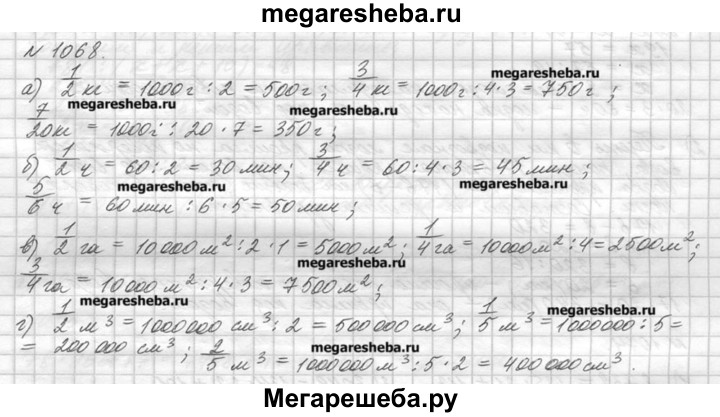 megaresheba.ru
№ 1068.
а) 1/2 кг = 1000г : 2 = 500г ; 3/4 кг = 1000г : 4 · 3 = 750г ;
megaresheba.ru
megaresheba.ru
megaresheba.ru
7/20 кг = 1000г : 20 · 7 = 350г ;
б) 1/2 ч = 60 : 2 = 30 мин ; 3/4 ч = 60 : 4 · 3 = 45 мин ;
megaresheba.ru
megaresheba.ru
5/6 ч = 60 мин : 6 · 5 = 50 мин ;
в) 1/2 га = 10 000 м² : 2 · 1 = 5000 м² ; 1/4 га = 10000 м² : 4 = 2500 м² ;
megaresheba.ru
megaresheba.ru
3/4 га = 10 000 м² : 4 · 3 = 7 500 м² ;
megaresheba.ru
г) 1/2 м³ = 1000 000 см³ : 2 = 500 000 см³ ; 1/5 м³ = 1000000 : 5 =
megaresheba.ru
= 200 000 см³ ; 2/5 м³ = 1000000 м³ : 5 · 2 = 400 000 см³ .
megaresheba.ru
Мегарешеба.ру